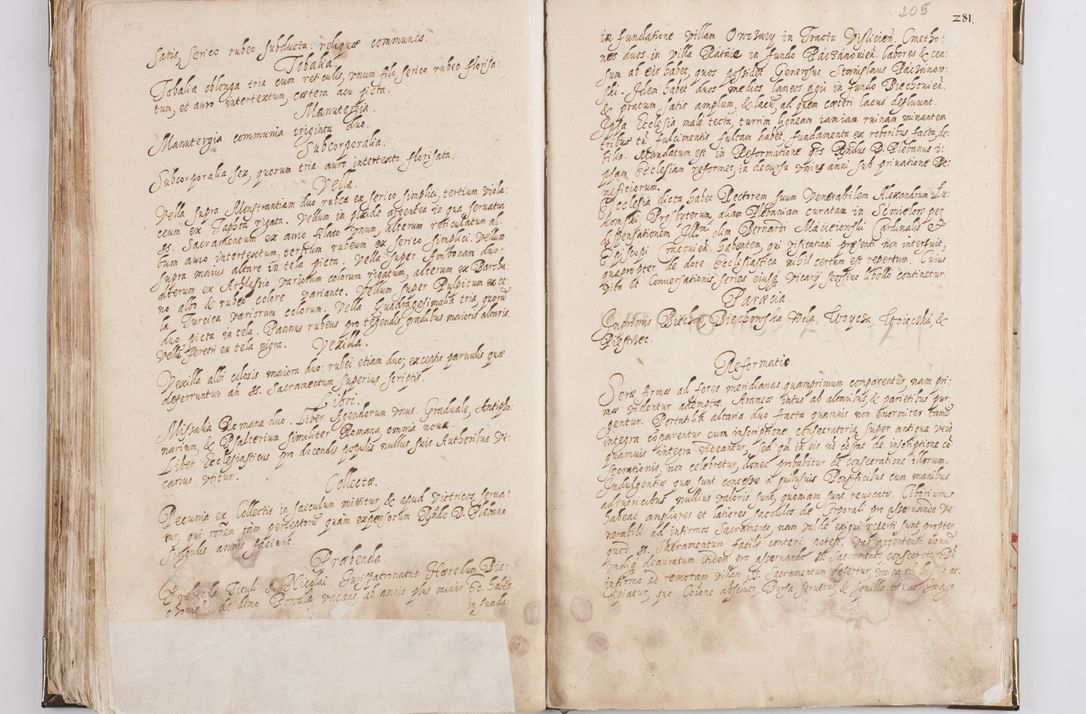 satis, serico rubeo subducta: reliquae communes.
Tobalia.
Tobalia oblonga tria cum reticulis, unum filo serico rubeo florisa:
tum, et auro intertextum, caetera acu picta.
Manutergia.
Manutergia communia triginta duo.
Subcorporalia.
Subcorporalia sex, quorum tria auro intertexta florisata.
Vella.
Vella supra Monstrantiam duo rubea ex serico simplici, tertium viola:
ceum ex Tapeta rigata. Vellum in argentea in qua servatur
SS. Sacramentum ex auro filato unum, alterum reticulatum al:
bum auro intertextum, tertium rubeum ex serico simplici. Vellum
supra maius altare in tela picta. Vella super Ambonam duo:
alterum ex Athlassio variorum colorum rigatum, alterum ex Barcha:
no albi & rubei colore variante. Vellum super Pulpitum ex te:
la Turcica variorum colorum. Vella Quadragesimalia tria, quorum
duo picta in tela. Pannus rubeus pro tegendis gradibus maioris altaris.
Velli feretri ex tela nigra.
Vexilla.
Vexilla albi coloris maiora duo: rubei etiam duo; exceptis parvulis quae
deferuntur an SS. Sacramentum superius scriptis.
Libri.
Missalia Romana duo. Liber Agendorum unus. Graduale, Antipho:
narium, & Psalterium similiter Romana, omnia nova.
Liber Ecclesiasticus pro docendis populis nullus, suis Authoribus Vi:
carius utitur.
Collectae.
Pecunia ex Collectis in sacculum mittitur, & apud Vitricos serva:
tur, qui rationem tam perceptorum quam expensorum Rndo D. Plebano
singulis annis faciunt.
Praebenda
Praebenda Tituli S. Nicolai. Juris Patronatus Haeredum Bie:
de demo vacans ab annis plus minus 60. habet
in funda
205
281.
in fundatione villam in Tractu Vislicien. Cmetho:
nes duos in villa Ratnie in fundo Paczanovien. labores & cen:
sum ab eis habet, quos possidet Generosus Stanislaus Paczanow:
ski. Idem habet duos medios laneos agri in fundo Biechovien.
& pratum satis amplum, & lacum, ad quem caeteri lacus defluunt.
Ipsa Ecclesia male tecta, turrim ligneam iamiam ruinam minantem
tribus tn fulcimentis fultam habet, fundamenta ex
filia. Mandatum est in Reformatione ut Rndus D. Plebanus i:
psam Ecclesiam reformet, in decursu unius anni sub privatione Be:
neficiorum.
Ecclesia dicta habet Rectorem suum Venerabilem Alexandrum Lu:
Presbyterum, aliam Plebaniam curatam in per
dispensationem Illmi olim Bernardi Macieiowski Cardinalis &
Episcopi Cracovien. habentem, qui visitationi praesenti non interfuit,
quapropter de dote Ecclesiastica nihil certum est repertum. Cuius
vita et conversationis series eiusque Vicarii seorsive libello continetur.
Paraecia
Inprimis Biecho, Biechowska Wola, Woycza, Woieczka, &
Piestrzec.
Reformatio
Serae firmae ad fores meridianas quamprimum comparentur, nam pri:
mae videntur ademptae. Araneae intus ab altaribus, & parietibus pur:
gentur. Portatilia altaria duo fracta quamvis non enormiter tamen
integra comparentur cum inscriptione Consecratoria, super antiqua vero
quamvis integra videantur, sed quia in eis non constat de inscriptione con
secrationis, non celebretur, donec probabitur de consecratione illorum.
Indulgentiae quae sunt concessae a quibusvis Pontificibus cum manibus
adiutricibus nullius valoris sunt, quoniam sunt revocatae. Ciborium
habeat ampliores et latiores sacculos de Corporali pro asservando Ve:
nerabili ad infirmos Sacramento, nam valde exigui reperti sunt, propter
quod SS. Sacramentum facile conteri potest. Vas argenteum novum
undique deauratum itidem pro asservando SS. Sacramento consecretur, dum
infirmo ad remotam villam SS. Sacramentum defertur, pro eo
cipiatur, pro absoluti